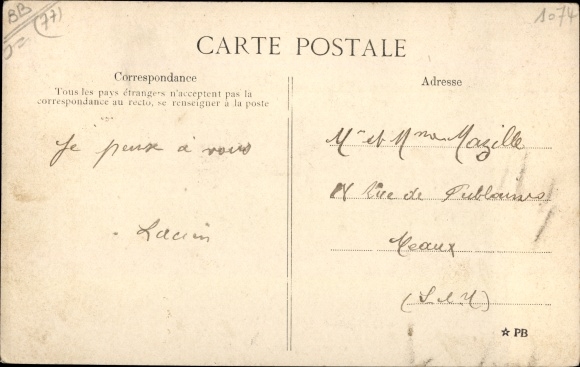 BB
(77)
1074
CARTE POSTALE
Correspondance
Tous les pays étrangers n'acceptent pas la
correspondance au recto, se renseigner à la poste
Je pense à vous
Lucien
Adresse
Mr et Mme Mazille
Rue de
Meaux
(S et M)
☆ PB